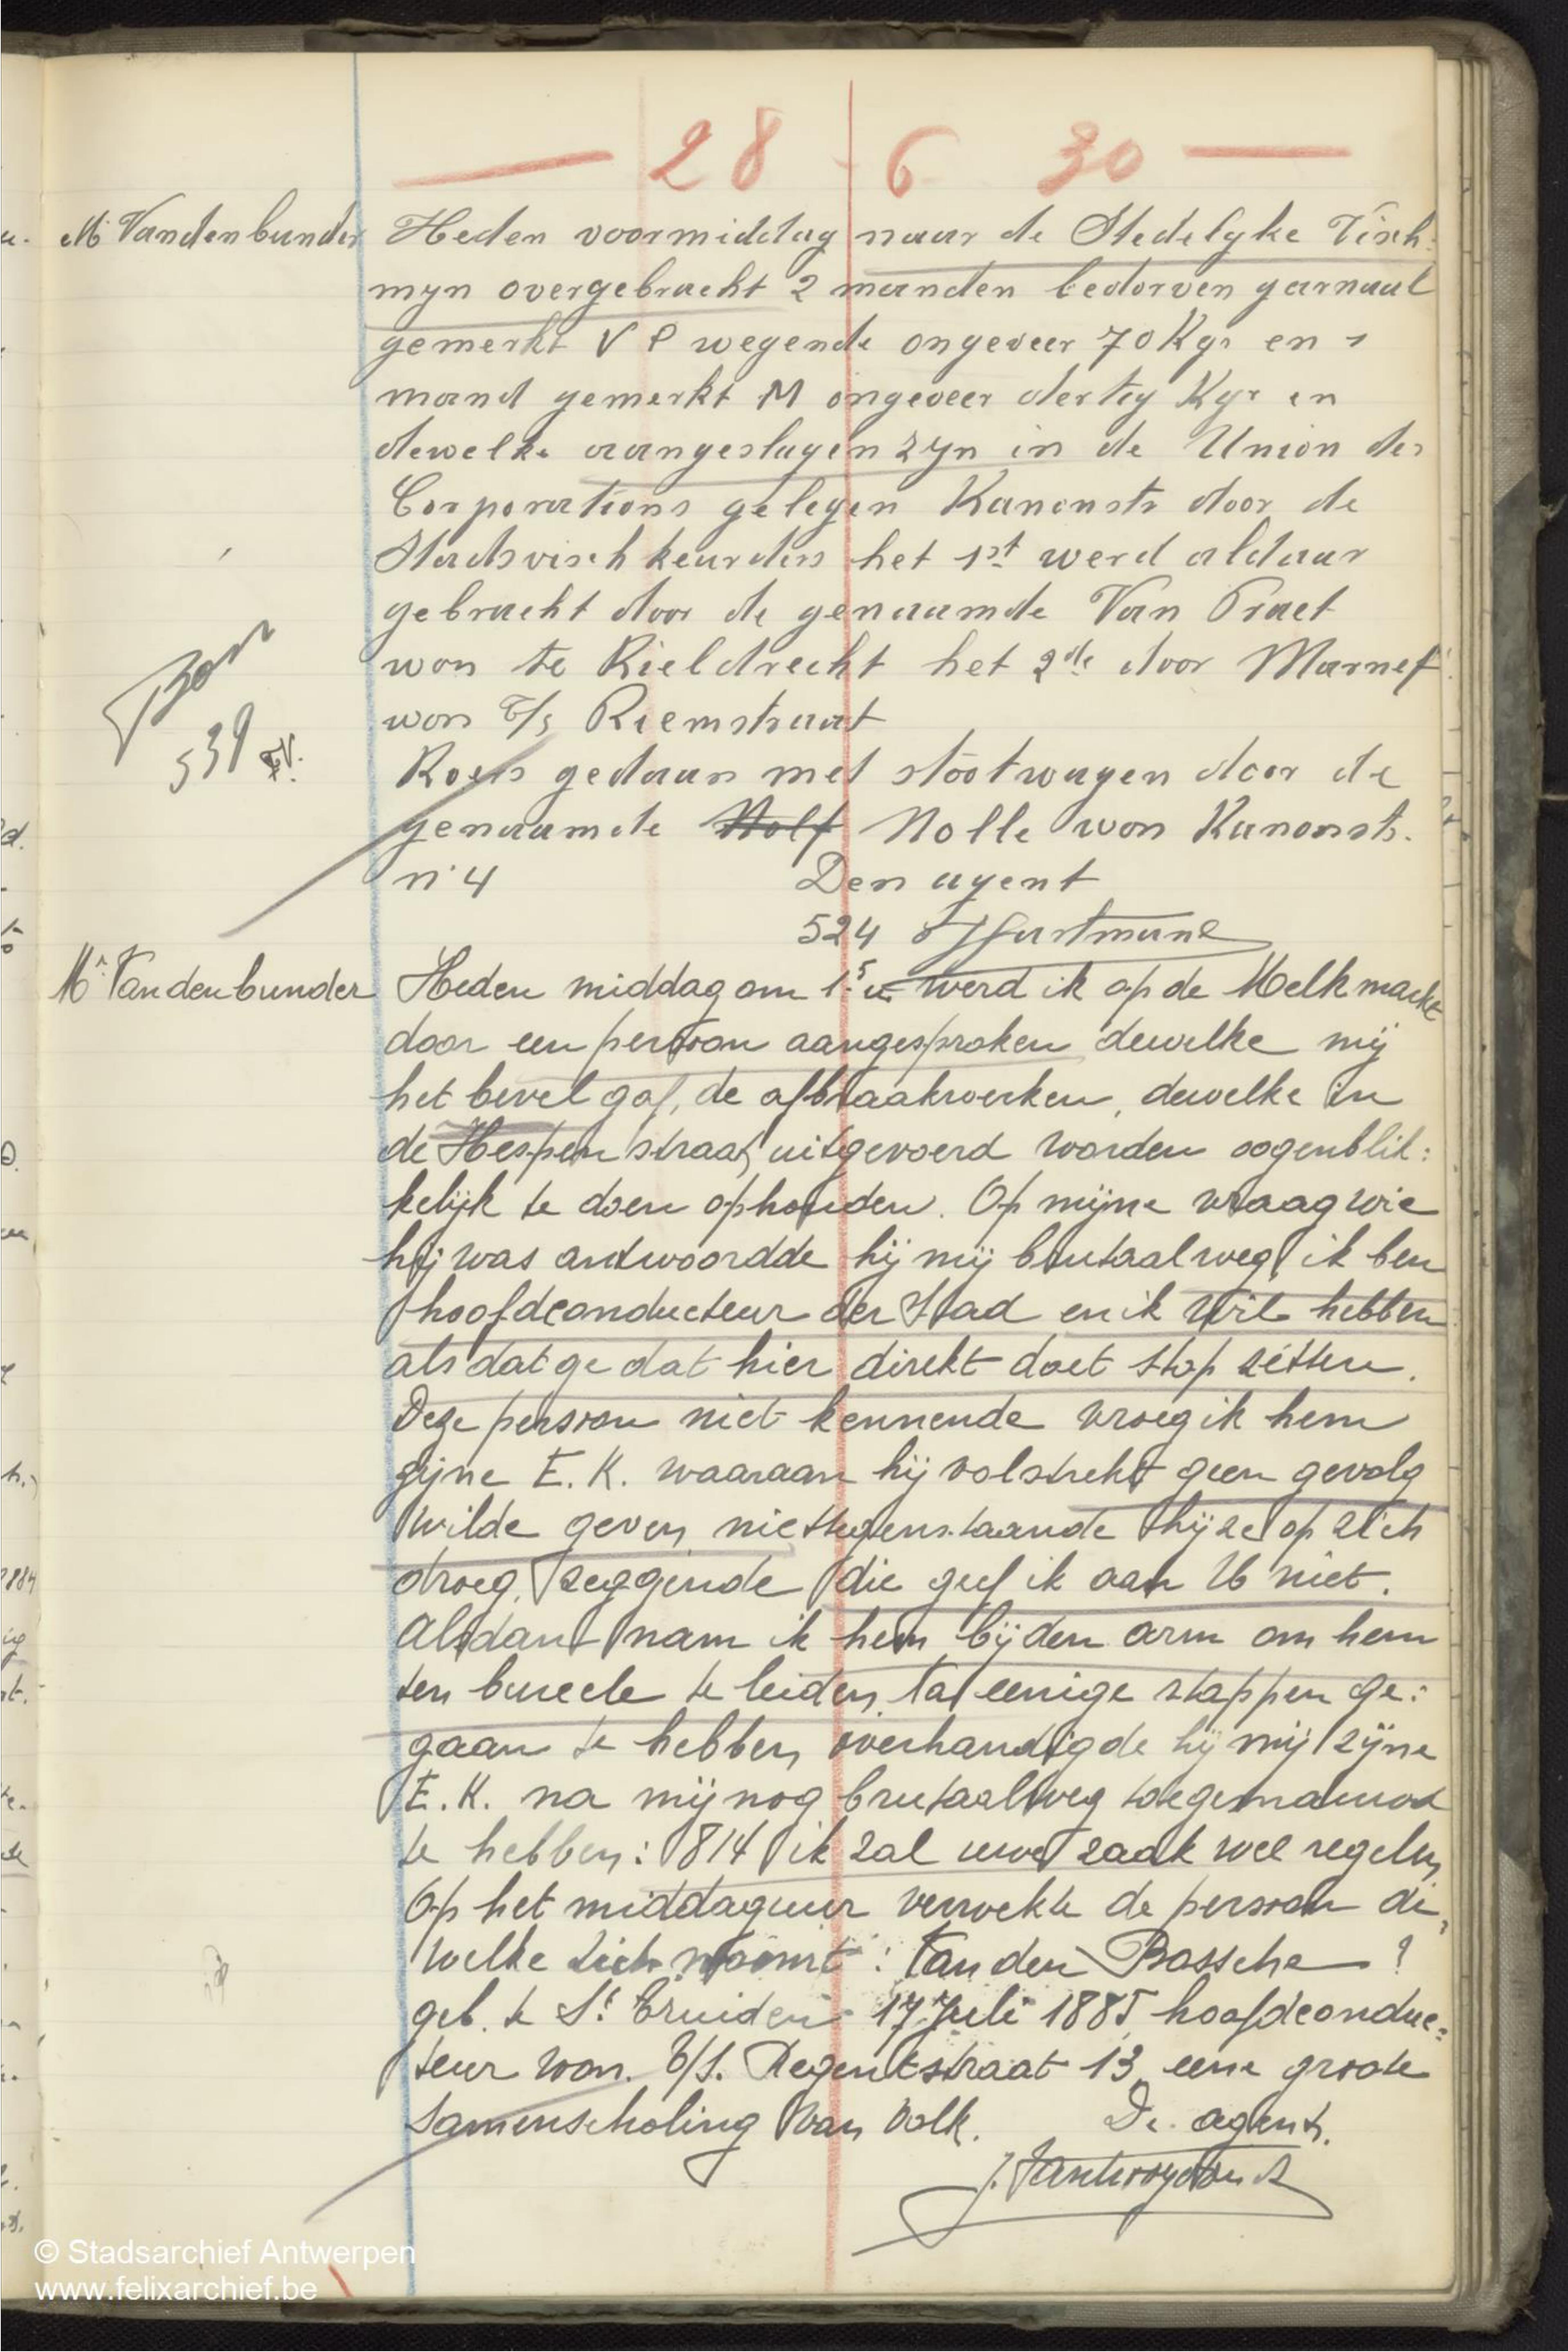 28 - 6 30
Mr Vandenbunder
Heden voormiddag naar de Stedelyke Visch:
myn overgebracht 2 manden bedorven garnaal
gemerkt V P wegende ongeveer 70 Kgr en 1
mand gemerkt M ongeveer dertig Kgr en
dewelke aangeslagen zyn in de Union des
Corporations gelegen Kanonstr door de
Stadsvischkeurders het 1st werd aldaar
gebracht door de genaamde Van Praet
won te Kieldrecht het 2de door Marnef
won b/s Riemstraat
Koers gedaan met stootwagen door de
genaamde Nolf Nolle won Kanonstr.
n° 4 Den agent
524 Hartmann
539
Mr Vandenbunder
Heden middag om 1 5 u werd ik op de Melkmarkt
door een persoon aangesproken dewelke mij
het bevel gaf, de afbraakwerken, dewelke in
de Hespenstraat uitgevoerd worden oogenblik:
kelijk te doen ophouden. Op mijne vraag wie
hij was antwoordde hij mij brutaalweg, ik ben
hoofdconducteur der Stad en ik wil hebben
als dat ge dat hier direkt doet stop zetten.
Deze persoon niet kennende vroeg ik hem
zijne E.K. waaraan hij volstrekt geen gevolg
wilde geven niettegenstaande hij ze op zich
droeg, zeggende die geef ik aan U niet.
Alsdan nam ik hem bij den arm om hem
ten bureele te leiden, na eenige stappen ge:
gaan te hebben, overhandigde hij mij zijne
E.K. na mij nog brutaalweg toegesnauwd
te hebben: 814 ik zal uwe zaak wel regelen,
Op het middaguur verwekte de persoon de,
welke zich noemt: Van den Bossche ?
geb. te St Truiden 17 Juli 1885 hoofdconduc:
teur won. b/s. Regentstraat 13, eene groote
Samenscholing van volk. De agent.
© Stadsarchief Antwerpen
www.felixarchief.be